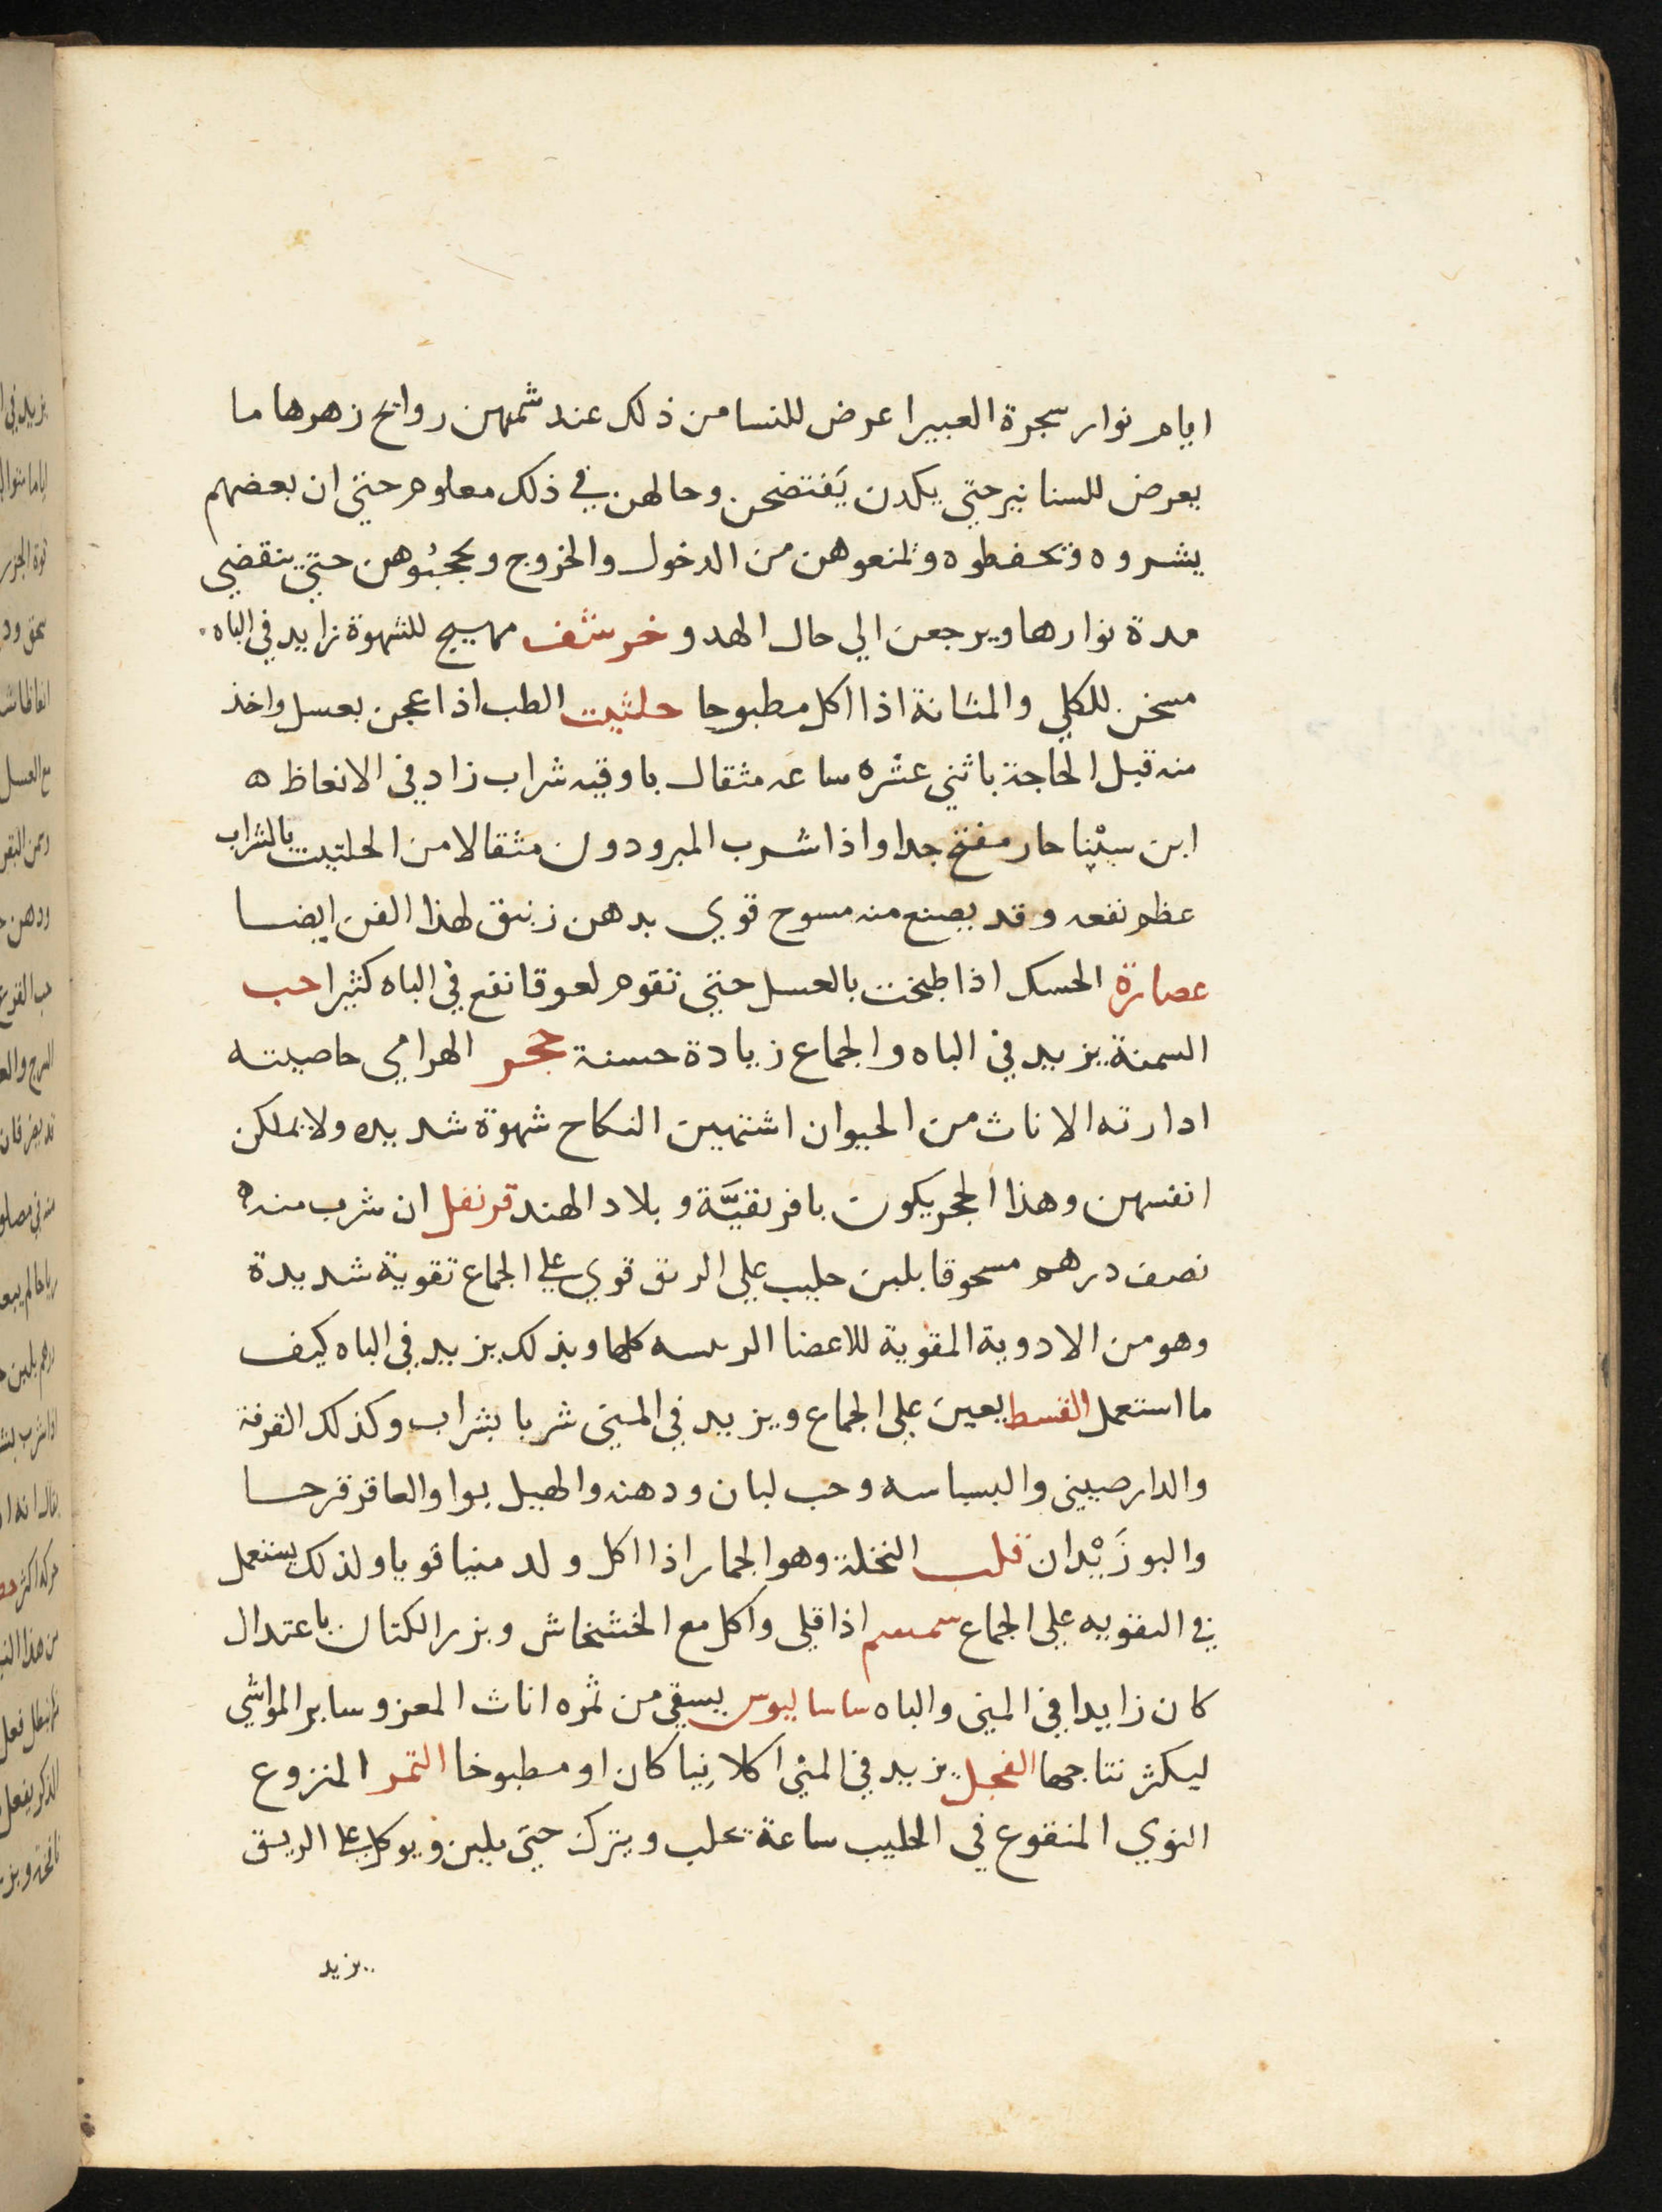 ايام نوار سجرة العبيرا عرض للنسا من ذلك عند شمهن روايح زهرها ما
يعرض للسنانير حتي يكدن يَفتضحن وحالهن في ذلك معلوم حتي ان بعضهم
يشروه وتحفطوه وتمنعوهن من الدخول والخروج ويحجبُوهن حتي تنقضي
مدة نوارها ويرجعن الي حال الهدو خرشف مهيج للشهوة زايد في الباه
مسخن للكلي والمثانة اذا اكل مطبوحا حلثيت الطب اذا عجن بعسل واخذ
منه قبل الحاجة باثني عشره ساعه مثقال باوقيه شراب زاد في الانعاظ ه
ابن سيْنا حار مفتح جدا واذا شرب المبرودون مثقالا من الحلتيت بالشراب
عظم نفعه وقد يصنع منه مسوح قوي بدهن زنبق لهذا الفن ايضا
عصارة الحسك اذا طبخت بالعسل حتي تقوم لعوقا نفع في الباه كثيرا حب
السمنة يزيد في الباه والجماع زيادة حسنة حجر الهرامي حاصيته
ادارته الاناث من الحيوان اشتهين النكاح شهوة شديده ولا يملكن
انفسهن وهذا الحجر يكون بافريقيَّة وبلاد الهند قرنفل ان شرب منه
نصف درهم مسحوقا بلبن حليب علي الريق قوي علي الجماع تقوية شديدة
وهو من الادوية المقوية للاعضا الريسه كلها وبذلك يزيد في الباه كيف
ما استعمل القسط يعين علي الجماع ويزيد في المني شربا بشراب وكذلك القرفة
والدارصيني والبسباسه وحب لبان ودهنه والهيل بوا والعاقرقرحا
والبوزَيْدان قلب النخلة وهو الجمار اذا اكل ولد منيا قويا ولذلك يستعمل
في التقويه علي الجماع سمسم اذا قلي واكل مع الخشخاش وبزر الكتان باعتدال
كان زايدا في المني والباه ساساليوس يسقي من ثمره اناث المعز وساير المواشي
ليكثر نتاجها الفجل يزيد في المني اكلا نِيا كان او مطبوخا التمر المنزوع
النوي المنقوع في الحليب ساعة تحلب ويترك حتي يلين ويوكل علي الريق
يزيد